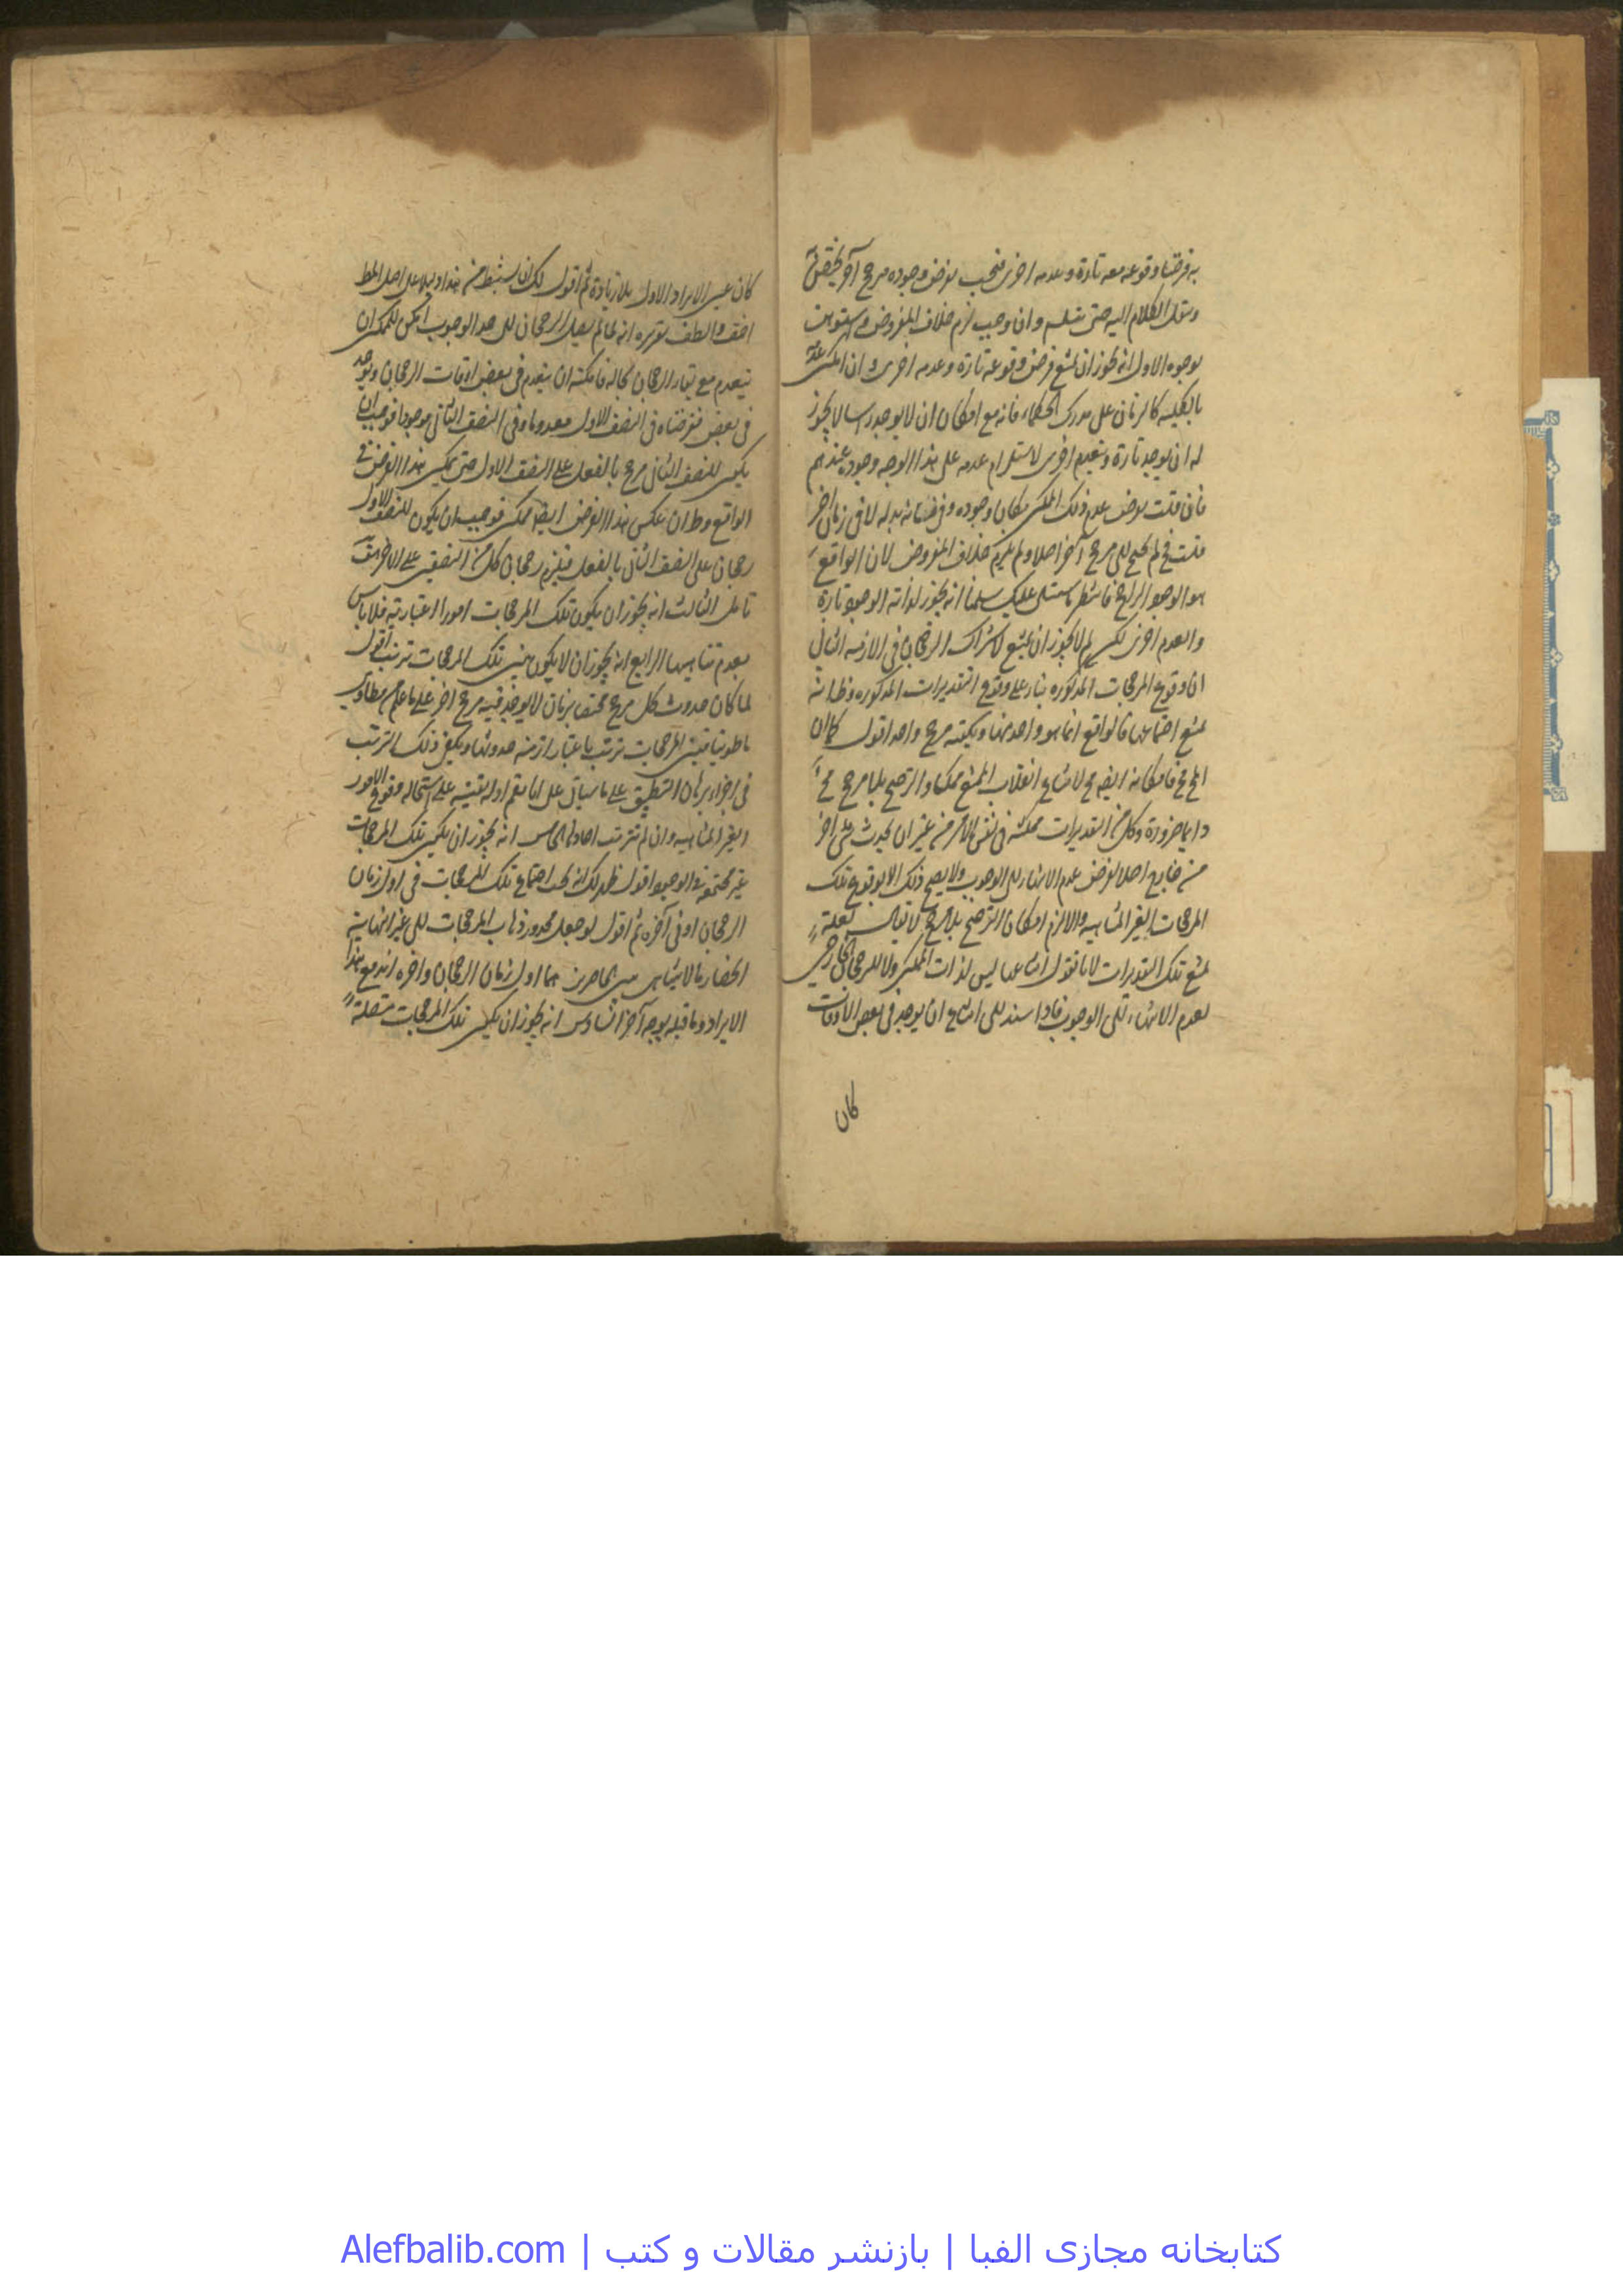 به فرضنا وقوعه معه تارة وعدمه اخرى فيجب لفرض وجوده مرجح آخر
وننقل الكلام اليه حتى يتسلسل وان وجب لزم خلاف المفروض
بوجوه الاول انه يجوز ان يمتنع فرض وقوعه تارة وعدمه اخرى
بالكلية كالزمان على مدرك الحكماء فانه مع امكان ان لا يوجد راسا لا يجوز
له ان يوجد تارة وينعدم اخرى لاستلزام عدمه على هذا الوجه وجوده عندهم
فان قلت نفرض عدم ذلك الممكن مكان وجوده بدله لا في زمان آخر
قلت فح لم يحتج الى مرجح آخر اصلا ولم يلزم خلاف المفروض لان الواقع
هو الوجود الراجح سلمنا انه يجوز لذاته الوجود تارة
والعدم اخرى لكن لم لا يجوز ان يمتنع لاشتراك الرجحان في الازمنة الثاني
ان وقوع المرجحات المذكورة بناء على وقوع التقديرات المذكورة
يمتنع اجتماعها فالواقع انما هو واحد منها ويكفيه مرجح واحد اقول كما ان
المح مح فامكانه ايضا مح لامتناع انقلاب الممتنع ممكنا والترجيح بلا مرجح مح
دايما ضرورة وكل من التقديرات ممكنة في نفس الامر من غير ان يحدث شئ آخر
من خارج اصلا لفرض عدم الانتهاء الى الوجوب ولا يصح ذلك الا بوقوع تلك
المرجحات الغير المتناهية والا لزم امكان الترجيح بلا مرجح لا يقال لعله
يمتنع تلك التقديرات لانا نقول امتناعها ليس لذات الممكن ولا للرجحان الخارجي
لعدم الانتهاء الى الوجوب فاذا استند الى امتناع ان يوجد في بعض الاوقات
كان
كان عين الايراد الاول بلا زيادة ثم اقول لك ان تستنبط من هذا دليلا على اصل المط
اخف والطف تقريره انه لما لم يصل الرجحان الى حد الوجوب امكن للممكن ان
ينعدم مع بقاء الرجحان بحاله فامكنه ان ينعدم في بعض اوقات الرجحان ويوجد
في بعض فنفرضناه في النصف الاول معدوما وفي النصف الثاني موجودا فوجب ان
يكون للنصف الثاني مرجح بالفعل على النصف الاول حتى يمكن هذا الفرض في
الواقع وظ ان عكس هذا الفرض ايضا ممكن فوجب ان يكون للنصف الاول
رجحان على النصف الثاني بالفعل فيلزم رجحان كل من النصفين على الآخر
تامل الثالث انه يجوز ان يكون تلك المرجحات امورا اعتبارية فلا باس
بعدم تناهيها الرابع انه يجوز ان لا يكون بين تلك المرجحات ترتب اقول
لما كان حدوث كل مرجح مختصا بزمان لا يوجد فيه مرجح آخر على ما علم
فبين المرجحات ترتب باعتبار ازمنة حدوثها ويكفي ذلك الترتب
في اجراء برهان التطبيق على ما سياتي على انا نقيم ادلة يقينية على استحالة وقوع الامور
الغير المتناهية وان لم تترتب آحادها الخامس انه يجوز ان يكون تلك المرجحات
غير مجتمعة في الوجود اقول ظهر لك انه يجب اجتماع تلك المرجحات في اول زمان
الرجحان او في آخره ثم اقول لو جعل محذور ذهاب المرجحات الى غير النهاية
انحصار ما لا يتناهى بين حاصرين هما اول زمان الرجحان وآخره اندفع هذا
الايراد وما قبله بوجه آخر السادس انه يجوز ان يكون تلك المرجحات متصلة
كتابخانه مجازی الفبا | بازنشر مقالات و کتب | Alefbalib.com